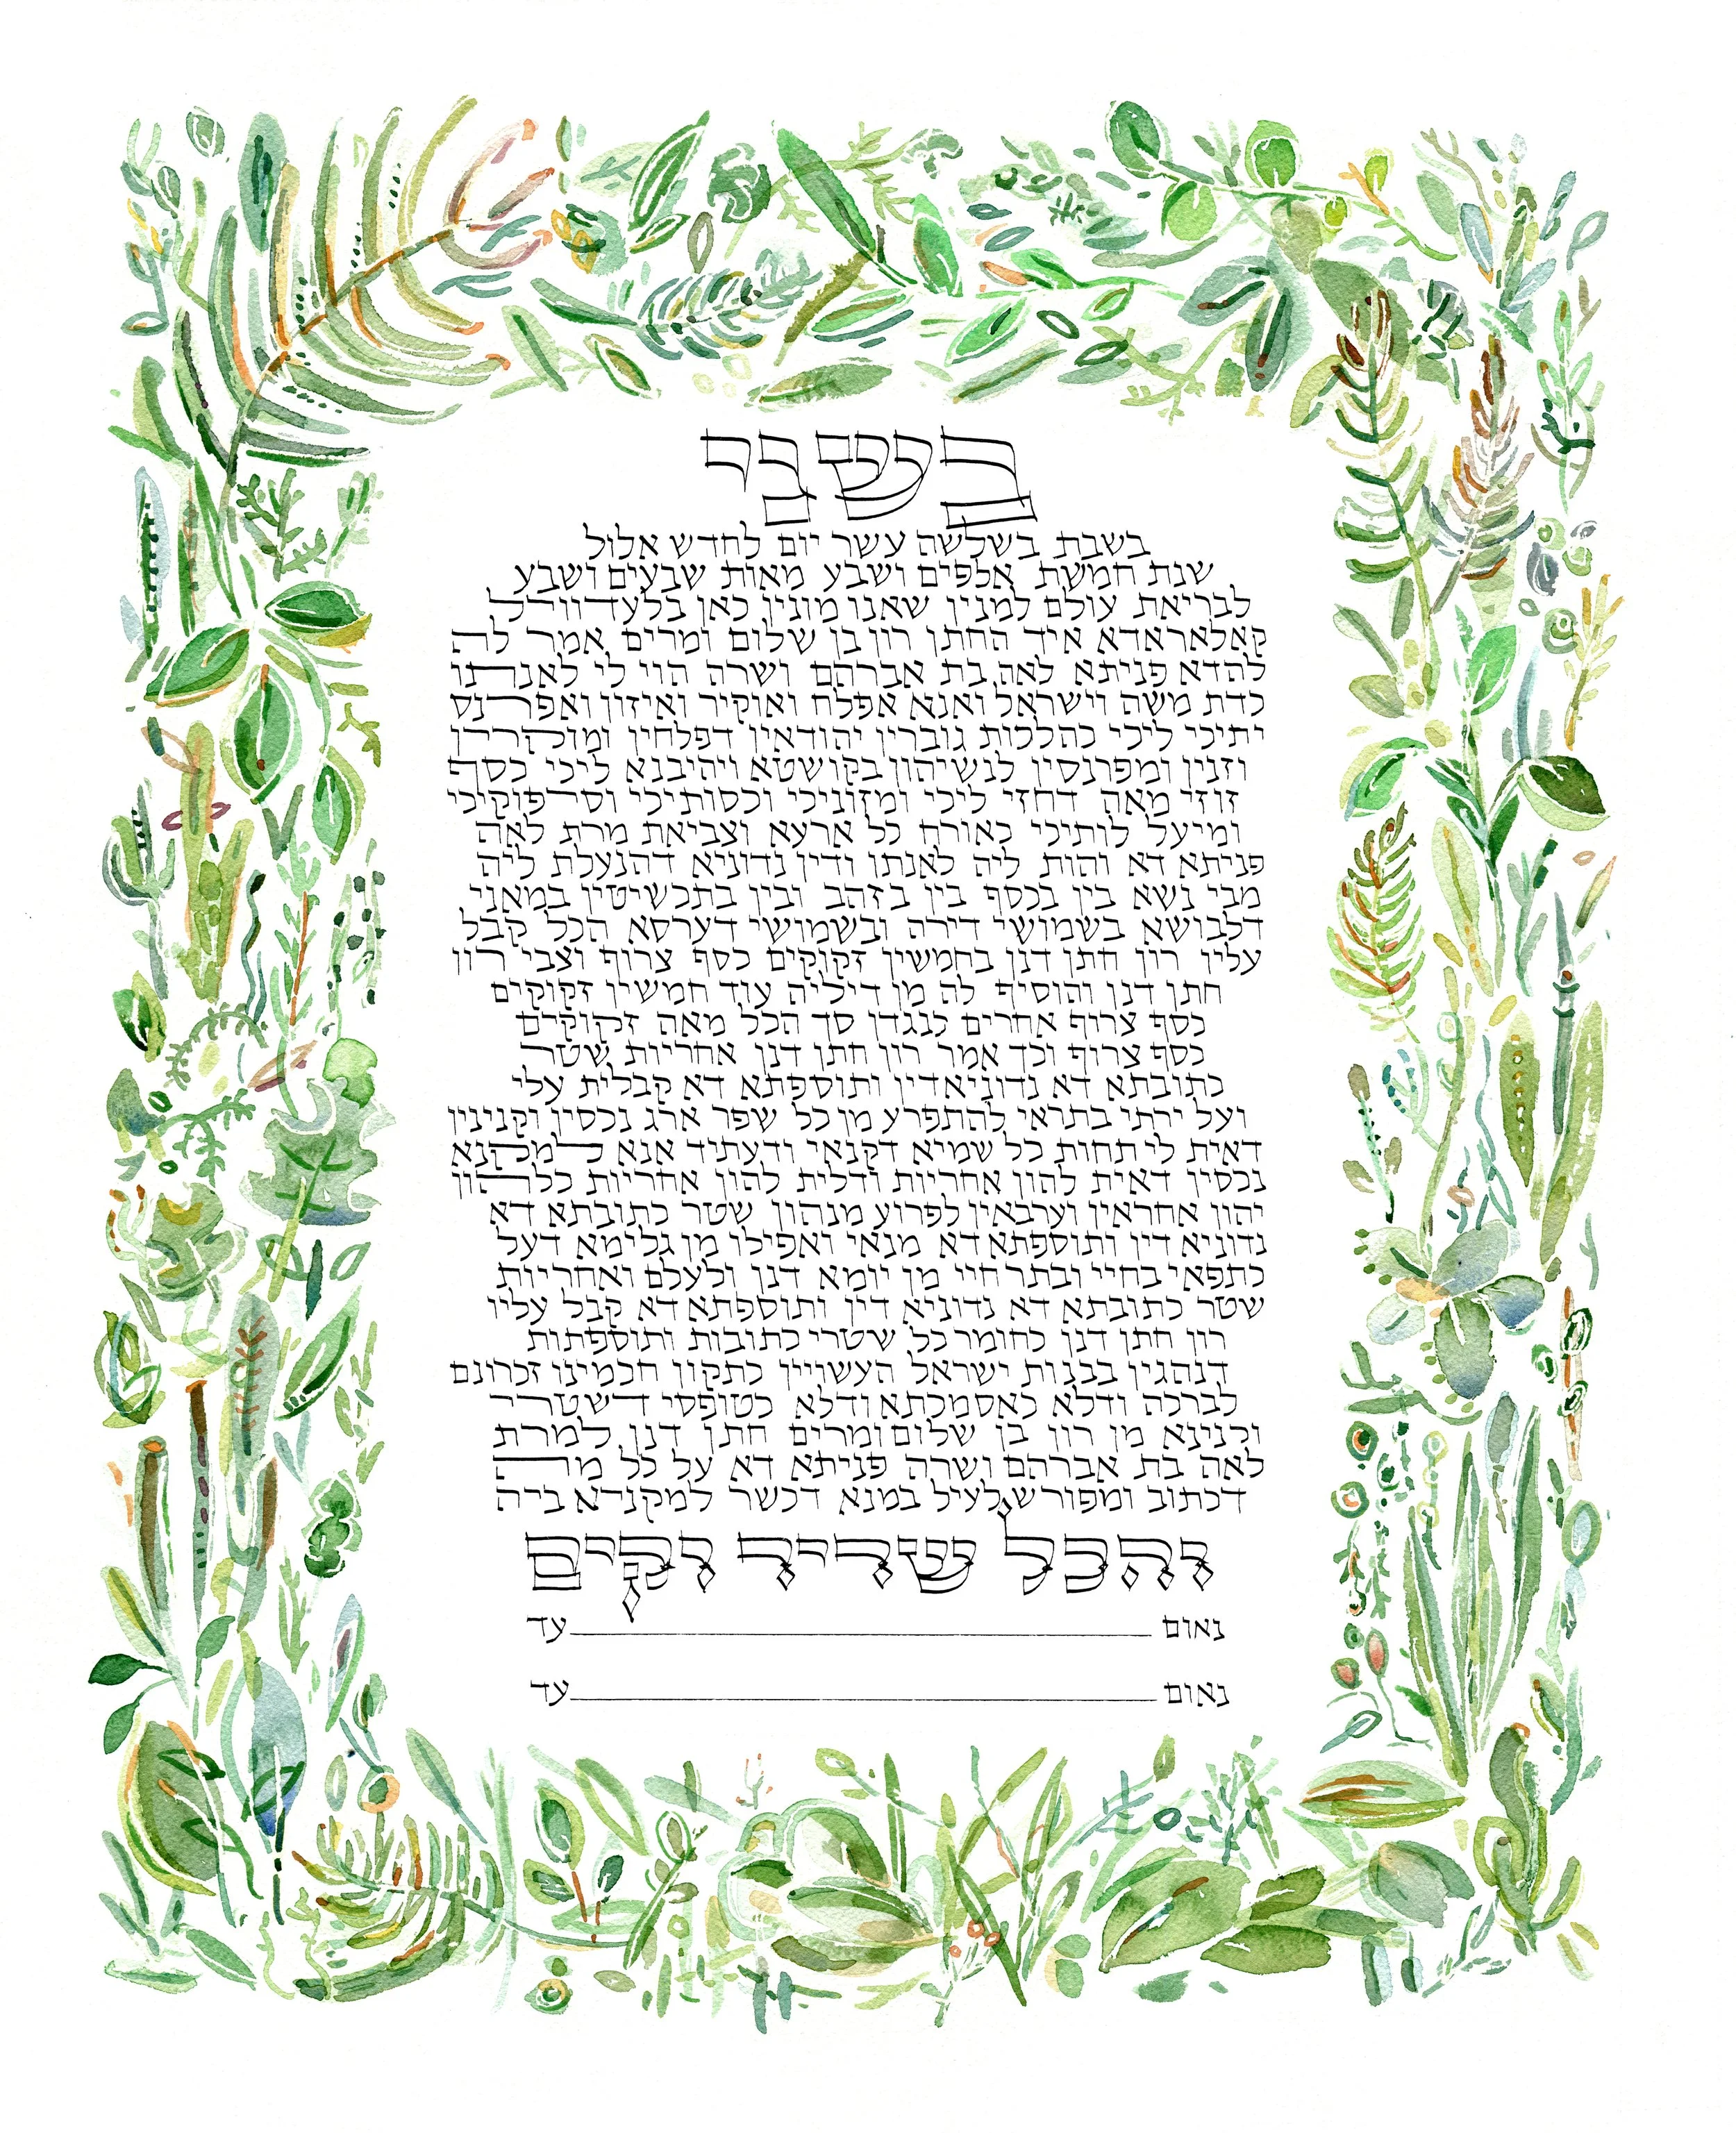 בשני
בשבת בשלשה עשר יום לחדש אלול
שנת חמשת אלפים ושבע מאות שבעים ושבע
לבריאת עולם למנין שאנו מונין כאן בלעדווירל
קאלאראדא איך החתן רון בן שלום ומרים אמר לה
להדא פניתא לאה בת אברהם ושרה הוי לי לאנתו
כדת משה וישראל ואנא אפלח ואוקיר ואיזון ואפרנס
יתיכי ליכי כהלכות גוברין יהודאין דפלחין ומוקרין
וזנין ומפרנסין לנשיהון בקושטא ויהיבנא ליכי כסף
זוזי מאה דחזי ליכי ומזוניכי וכסותיכי וסיפוקיכי
ומיעל לותיכי כאורח כל ארעא וצביאת מרת לאה
פניתא דא והות ליה לאנתו ודין נדוניא דהנעלת ליה
מבי נשא בין בכסף בין בזהב ובין בתכשיטין במאני
דלבושא בשמושי דירה ובשמושי דערסא הכל קבל
עליו רון חתן דנן בחמשין זקוקים כסף צרוף וצבי רון
חתן דנן והוסיף לה מן דיליה עוד חמשין זקוקים
כסף צרוף אחרים כנגדן סך הכל מאה זקוקים
כסף צרוף וכך אמר רון חתן דנן אחריות שטר
כתובתא דא נדוניא דין ותוספתא דא קבלית עלי
ועל ירתי בתראי להתפרע מן כל שפר ארג נכסין וקנינין
דאית לי תחות כל שמיא דקנאי ודעתיד אנא למקנא
נכסין דאית להון אחריות ודלית להון אחריות כלהון
יהון אחראין וערבאין לפרוע מנהון שטר כתובתא דא
נדוניא דין ותוספתא דא מנאי ואפילו מן גלימא דעל
כתפאי בחיי ובתר חיי מן יומא דנן ולעלם ואחריות
שטר כתובתא דא נדוניא דין ותוספתא דא קבל עליו
רון חתן דנן כחומר כל שטרי כתובות ותוספתות
דנהגין בבנות ישראל העשויין כתקון חכמינו זכרונם
לברכה ודלא כאסמכתא ודלא כטופסי דשטרי
וקנינא מן רון בן שלום ומרים חתן דנן למרת
לאה בת אברהם ושרה פניתא דא על כל מה
דכתוב ומפורש לעיל במנא דכשר למקניא ביה
והכל שריר וקים
נאום עד
נאום עד